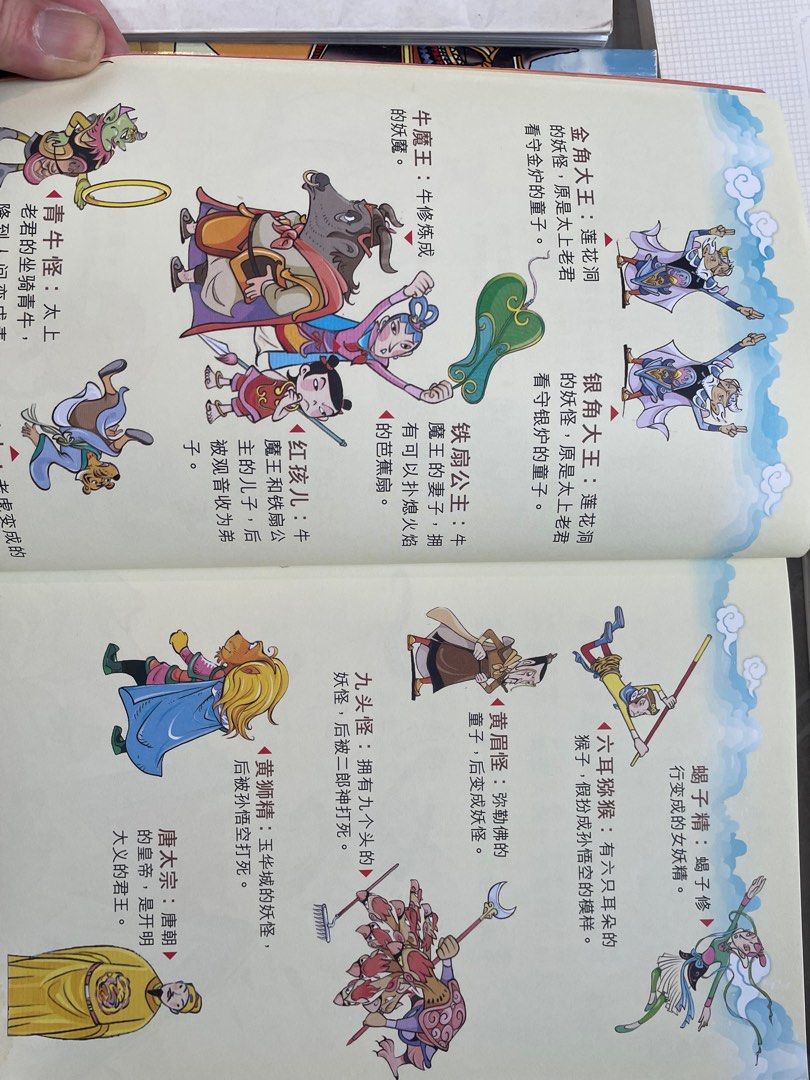 金角大王：莲花洞
的妖怪，原是太上老君
看守金炉的童子。
银角大王：莲花洞
的妖怪，原是太上老君
看守银炉的童子。
牛魔王：牛修炼成
的妖魔。
铁扇公主：牛
魔王的妻子，拥
有可以扑熄火焰
的芭蕉扇。
红孩儿：牛
魔王和铁扇公
主的儿子，后
被观音收为弟
子。
青牛怪：太上
老君的坐骑青牛，
降到人间变成青
老虎变成的
蝎子精：蝎子修
行变成的女妖精。
六耳猕猴：有六只耳朵的
猴子，假扮成孙悟空的模样。
黄眉怪：弥勒佛的
童子，后变成妖怪。
九头怪：拥有九个头的
妖怪，后被二郎神打死。
黄狮精：玉华城的妖怪，
后被孙悟空打死。
唐太宗：唐朝
的皇帝，是开明
大义的君王。